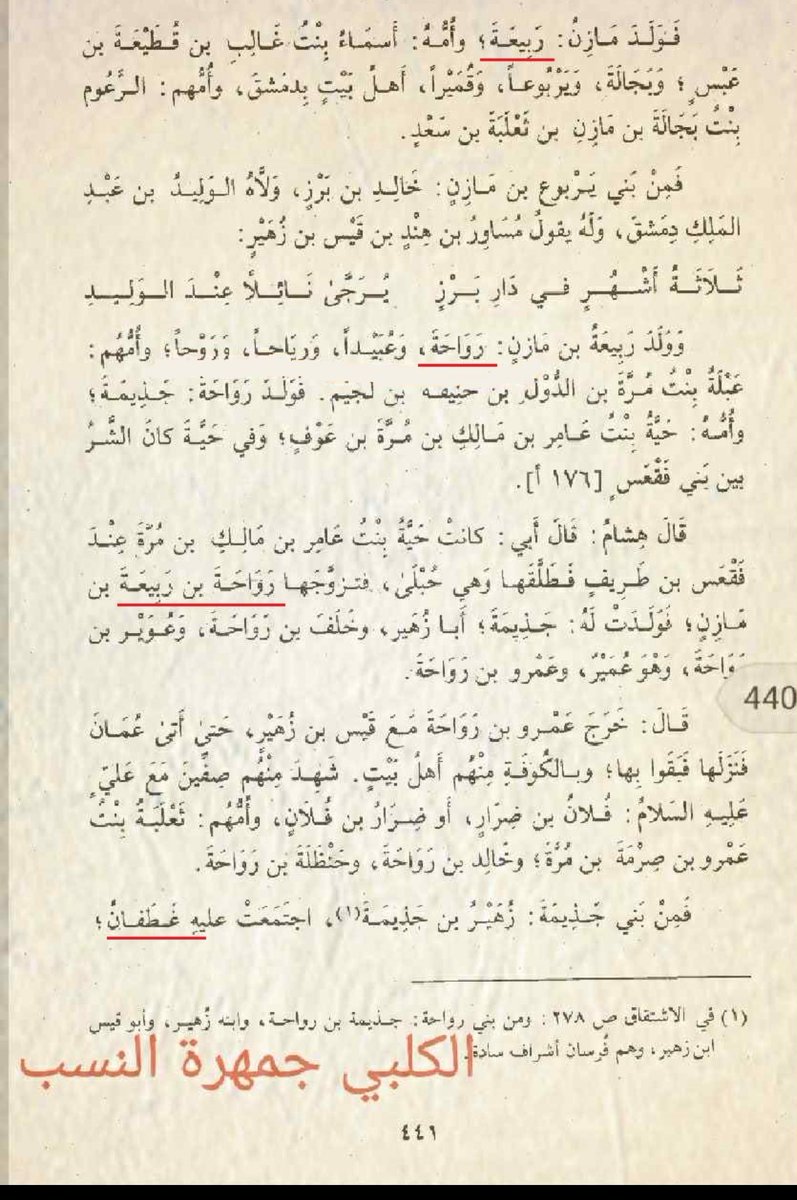 فَوَلَدَ مَازِنُ: رَبِيعَةَ؛ وأُمُّهُ: أَسمَاءُ بِنْتُ غَالِبِ بن قُطَيْعَةَ بن
عَبْسٍ؛ وَبَجَالَةَ، وَيَرْبُوعاً، وَقُمَيْراً، أَهلُ بَيْتٍ بِدمَشقَ، وأُمُّهم: الرَّعُوم
بِنْتُ بَجَالَةَ بن مَازِنِ بن ثَعْلَبَةَ بن سَعْدٍ.
فَمِنْ بَني يَرْبوع بن مَازِنٍ: خَالِدِ بن بَرْزٍ، وَلاَّهُ الوَلِيدُ بن عَبْدِ
المَلِكِ دِمَشقَ، وَلَهُ يقولُ مُسَاوِرُ بن هِنْدٍ بن قَيْس بن زُهَيْرٍ:
ثَلاَثَةُ أَشْهُرٍ في دَارِ بَرْزٍ يُرَجَّىٰ نَائِلًا عِنْدَ الوَلِيدِ
وَوَلَدَ رَبِيعَةُ بن مَازنٍ: رَوَاحَةَ، وَعُبَيْداً، ورِيَاحاً، وَرَوْحاً؛ وأُمُّهُم:
عَبْلَةُ بِنْتُ مُرَّةَ بن الدُّوْلِ بن حنِيفه بن لجيْم. فَولَدَ رَوَاحَةَ: جَذِيمَةَ؛
وأُمُّهُ: حَيَّةُ بِنْتُ عَامِر بن مَالِكِ بن مُرَّةَ بن عَوْفٍ؛ وَفي حَيَّةَ كانَ الشَّرُ
بين بَني فَقْعَس [١٧٦ أ].
قَالَ هِشامُ: قَالَ أَبي: كانتْ حَيَّةُ بِنْتُ عَامِر بن مَالِكِ بن مُرّةَ عِنْدَ
فَقْعَس بن طَرِيفٍ فَطَلَّقَها وَهي حُبْلَىٰ، فتزوَّجَها رَوَاحَةَ بن رَبِيعَةَ بن
مَازِنٍ؛ فَوَلَدَتْ لَهُ: جَذِيمَةَ؛ أَبا زُهَير، وخَلَفَ بن رَوَاحَةَ، وَعُوَيْر بن
رَوَاحَةَ، وَهْوَ عُمَيْرٌ، وعَمْرو بن رَوَاحَةَ.
440
قَالَ: خَرَجَ عَمْرو بن رَوَاحَةَ مَعَ قَيْس بن زُهَيْرٍ، حَتىٰ أَتىٰ عُمَانَ
فَنَزَلَها فَبَقَوا بِها؛ وبالكُوفَةِ مِنْهُم أَهلُ بَيْتٍ. شَهِدَ مِنْهُم صِفِّينَ مَعَ عَليّ
عَلِيهِ السَلامُ: فُلانُ بن ضِرَارٍ، أَو ضِرَارُ بن فُلَانٍ، وأُمُّهم: ثَعْلَبَةُ بِنْتُ
عَمْرو بن صِرْمَةَ بن مُرَّةَ؛ وخَالِد بن رَوَاحَةَ، وحَنْظَلَةَ بن رَوَاحَةَ.
فَمِنْ بَني جَذِيمَةَ: زُهَيْرُ بن جَذِيمَةَ(١)، اجتَمَعَتْ عليهِ غَطَفانُ؛
(١) في الاشتقاق ص ٢٧٨: ومن بني رواحة: جذيمة بن رواحة، وابنه زُهير، وأبو قيس
ابن زهير، وهم فُرسان أشراف سادة.
الكلبي جمهرة النسب
٤٤١